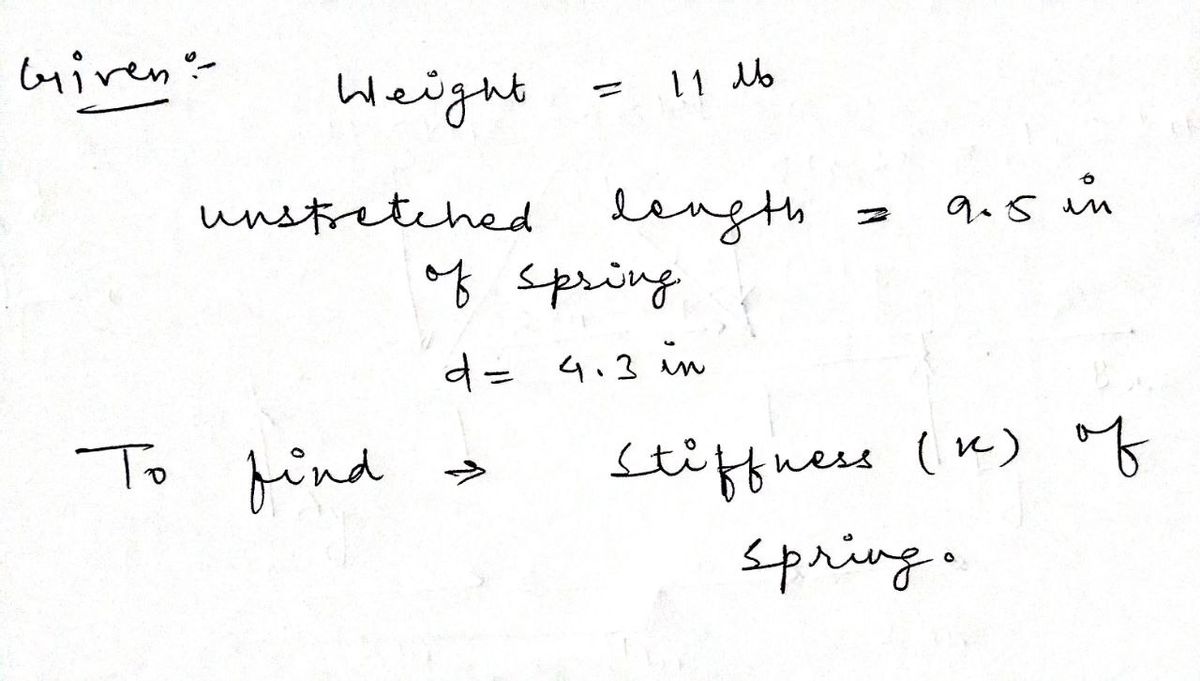 Given :-
Weight = 11 lb
unstretched length = 9.5 in
of spring.
d = 4.3 in
To find ⇒ Stiffness (k) of
spring.